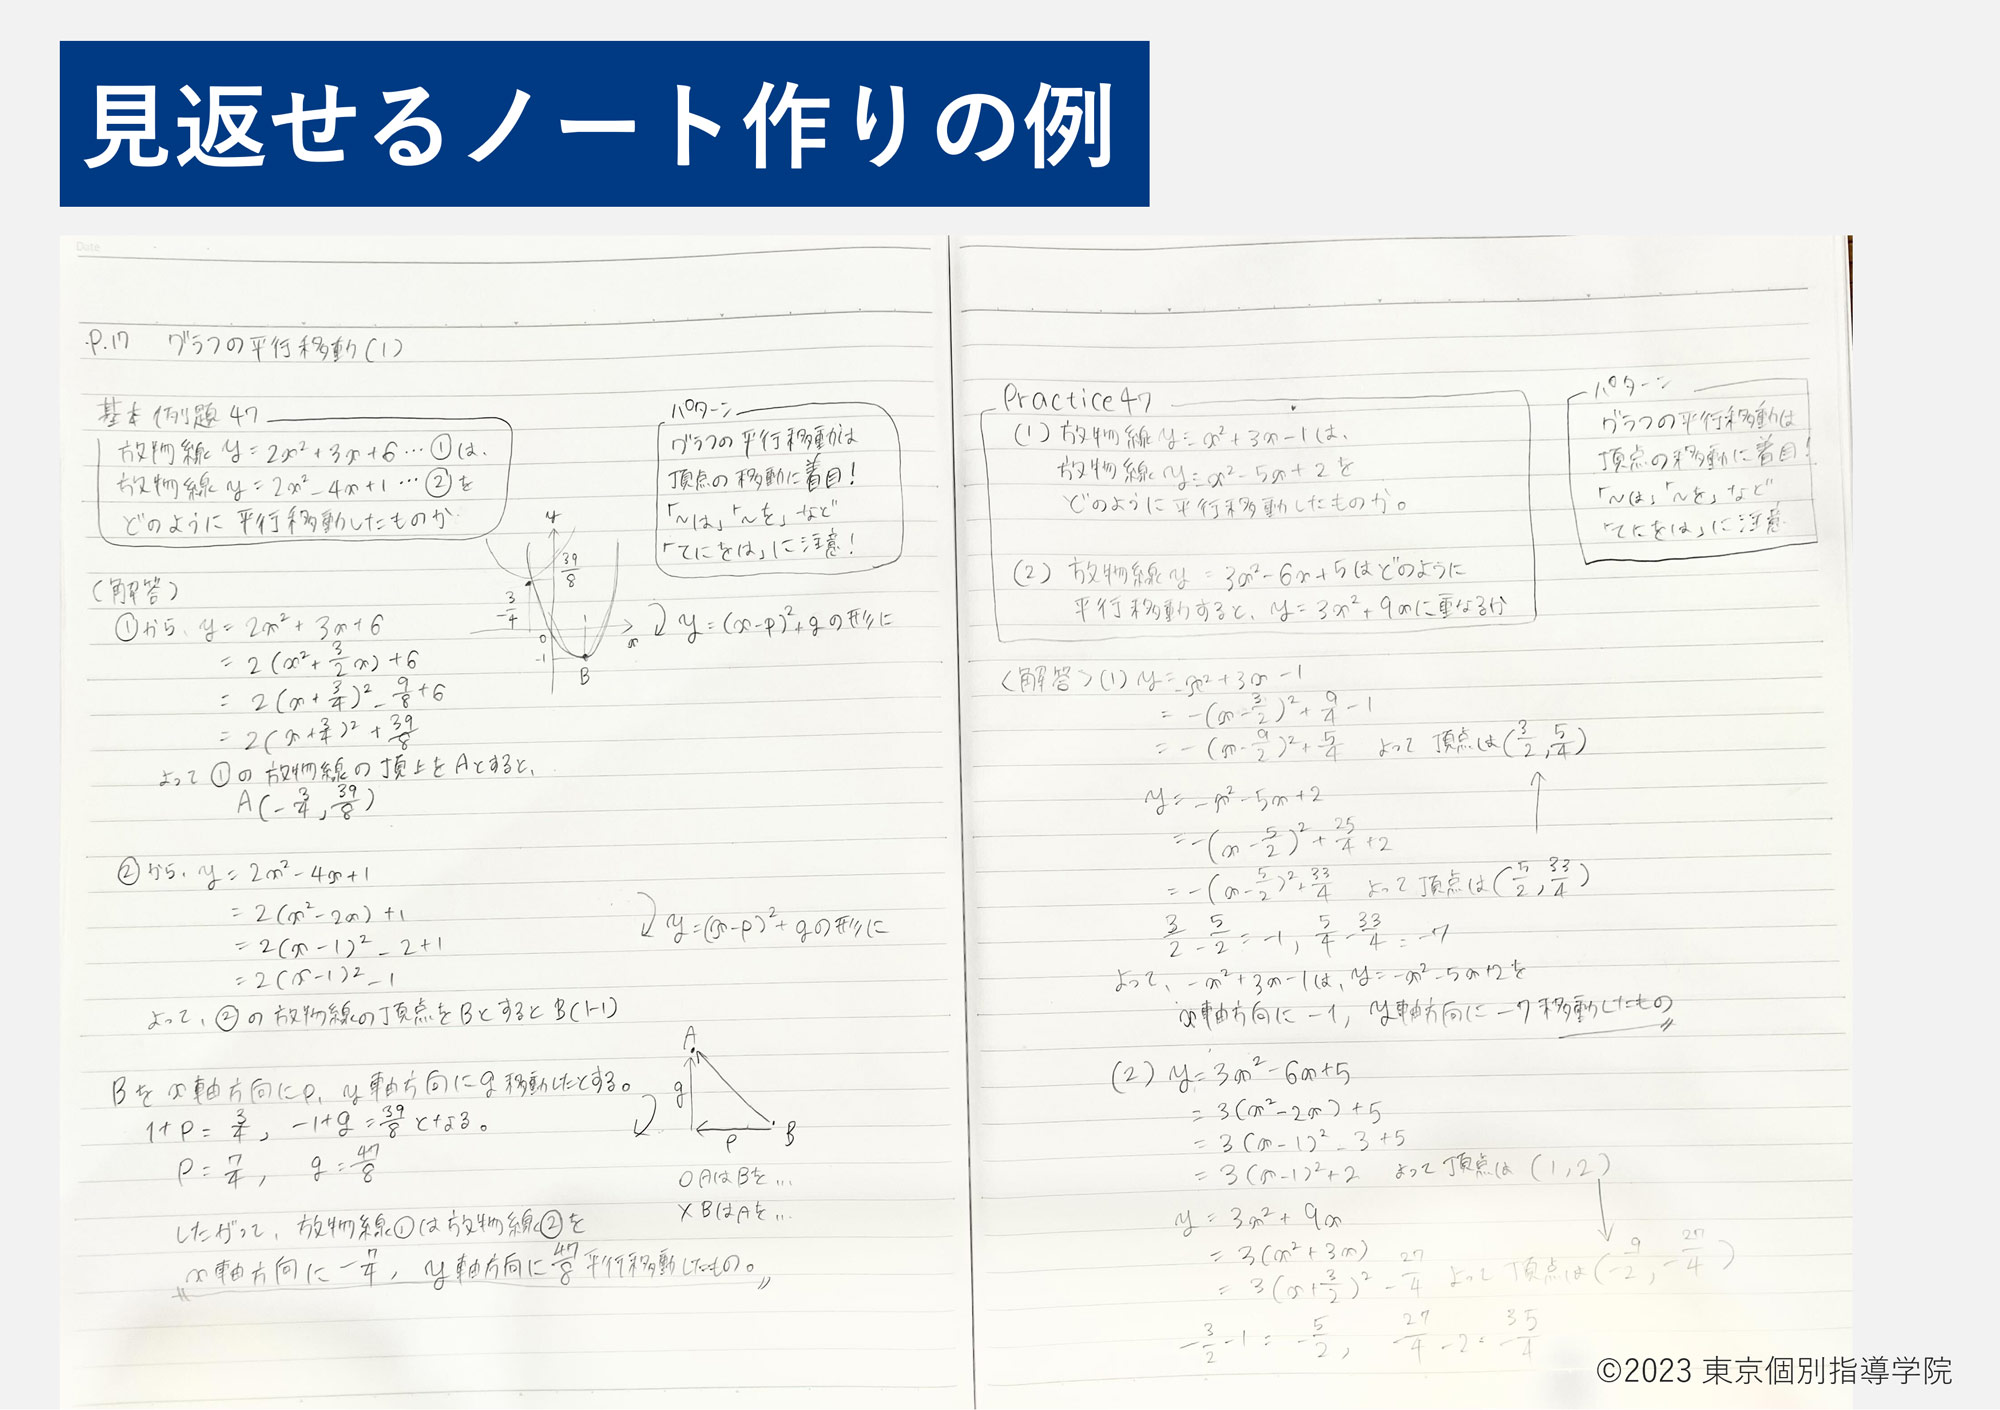 見返せるノート作りの例
Date
P.17 グラフの平行移動(1)
基本例題 47
放物線 y=2x²+3x+6…①は、
放物線 y=2x²-4x+1…②を
どのように平行移動したものか
パターン
グラフの平行移動は
頂点の移動に着目!
「～は」「～を」など
「てにをは」に注意!
y
39/8
-3/4
0
x
-1
B
(解答)
①から、y=2x²+3x+6
=2(x²+3/2x)+6
=2(x+3/4)²-9/8+6
=2(x+3/4)²+39/8
y=(x-p)²+qの形に
よって①の放物線の頂上をAとすると、
A(-3/4, 39/8)
②から、y=2x²-4x+1
=2(x²-2x)+1
=2(x-1)²-2+1
=2(x-1)²-1
y=(x-p)²+qの形に
よって、②の放物線の頂点をBとするとB(1-1)
Bをx軸方向にp、y軸方向にq移動したとする。
1+p=3/4, -1+q=39/8となる。
p=7/4, q=47/8
A
q
p
B
○AはBを…
×BはAを…
したがって、放物線①は放物線②を
x軸方向に-7/4, y軸方向に47/8平行移動したもの。
Practice47
(1) 放物線y=-x²+3x-1は、
放物線y=-x²-5x+2を
どのように平行移動したものか。
(2) 放物線y=3x²-6x+5はどのように
平行移動すると、y=3x²+9xに重なるか
パターン
グラフの平行移動は
頂点の移動に着目!
「～は」「～を」など
「てにをは」に注意
(解答)(1) y=-x²+3x-1
=-(x-3/2)²+9/4-1
=-(x-9/2)²+5/4 よって頂点は(3/2, 5/4)
y=-x²-5x+2
=-(x-5/2)²+25/4+2
=-(x-5/2)²+33/4 よって頂点は(5/2, 33/4)
3/2-5/2=-1, 5/4-33/4=-7
よって、-x²+3x-1は、y=-x²-5x+2を
x軸方向に-1, y軸方向に-7移動したもの
(2) y=3x²-6x+5
=3(x²-2x)+5
=3(x-1)²-3+5
=3(x-1)²+2 よって頂点は(1,2)
y=3x²+9x
=3(x²+3x)
=3(x+3/2)²-27/4 よって頂点は(-9/2, -27/4)
-3/2-1=-5/2, -27/4-2=-35/4
©2023 東京個別指導学院